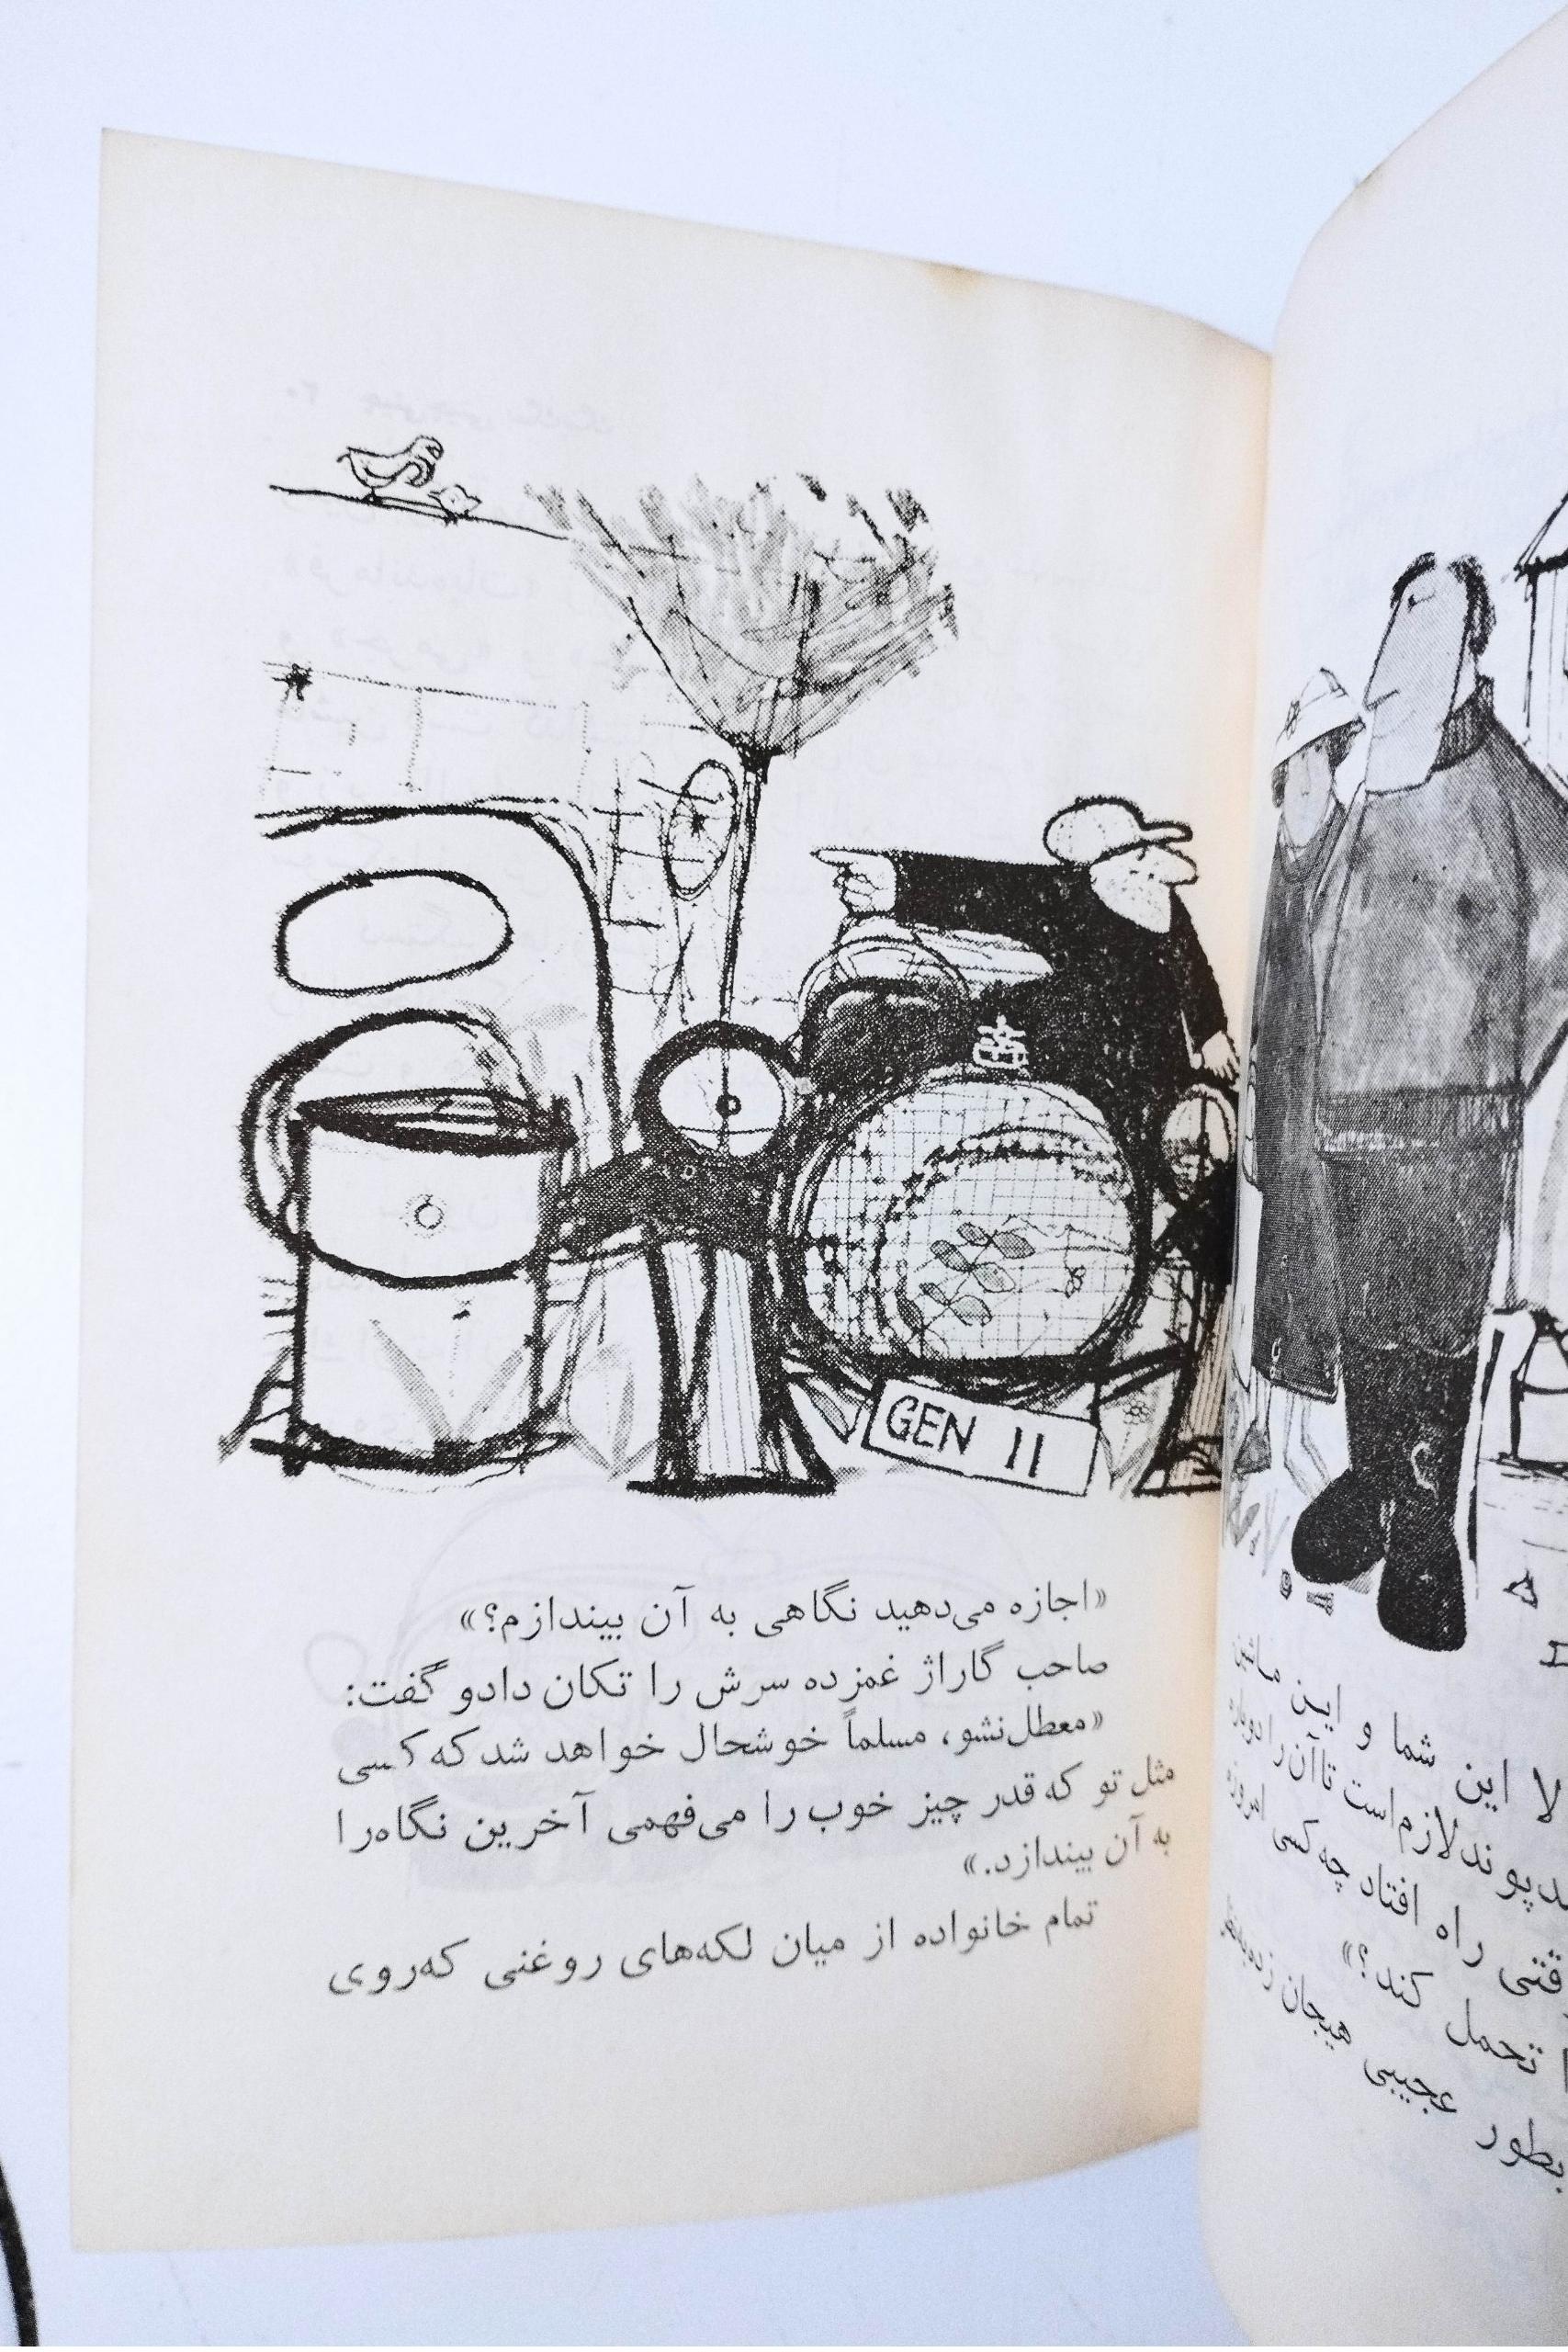 GEN 11
«اجازه می‌دهید نگاهی به آن بیندازم؟»
صاحب گاراژ غمزده سرش را تکان دادو گفت:
«معطل‌نشو، مسلماً خوشحال خواهد شد که کسی
مثل تو که قدر چیز خوب را می‌فهمی آخرین نگاه‌را
به آن بیندازد.»
تمام خانواده از میان لکه‌های روغنی که‌روی
لا این شما و این ماشین
لازم‌است تاآن‌را دوباره
راه افتاد چه‌کسی امروزه
تحمل کند؟»
بطور عجیبی هیجان زده‌بود